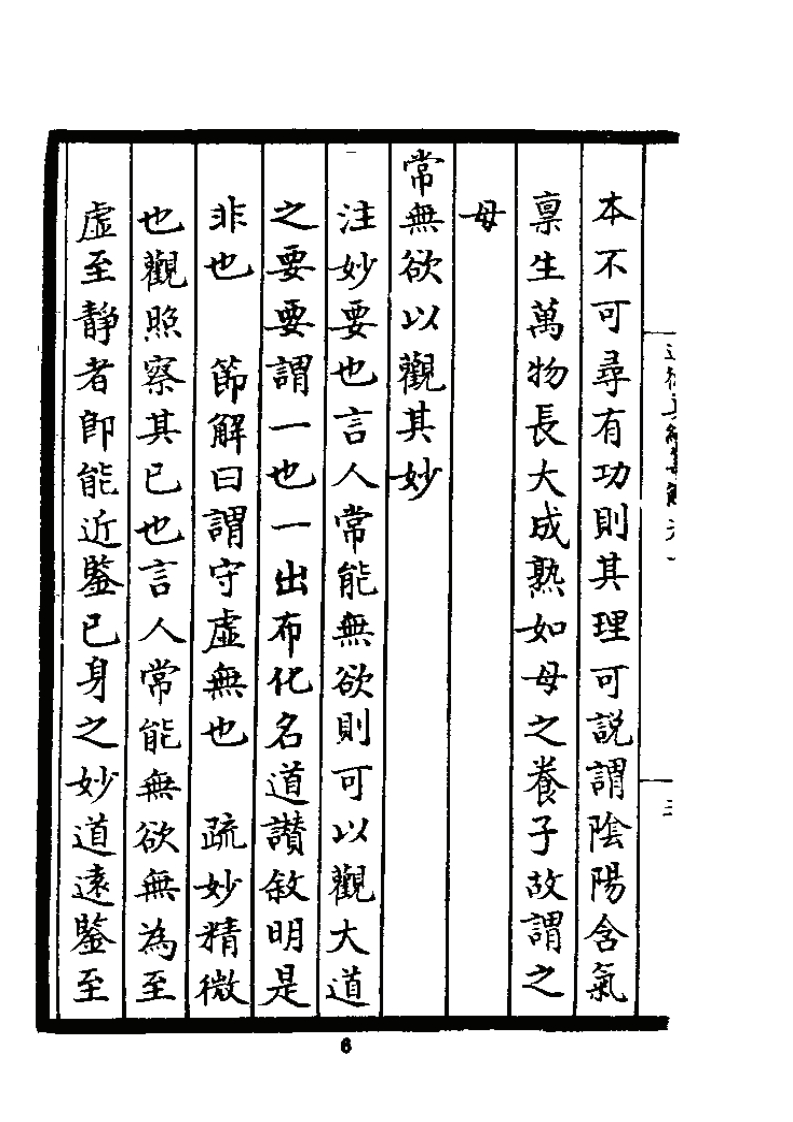 本不可尋有功則其理可説謂陰陽含氣
稟生萬物長大成熟如母之養子故謂之
母
常無欲以觀其妙
注妙要也言人常能無欲則可以觀大道
之要要謂一也一出布化名道讚敘明是
非也　節解曰謂守虛無也　疏妙精微
也觀照察其已也言人常能無欲無為至
虛至靜者即能近鑒已身之妙道遠鑒至
三
6